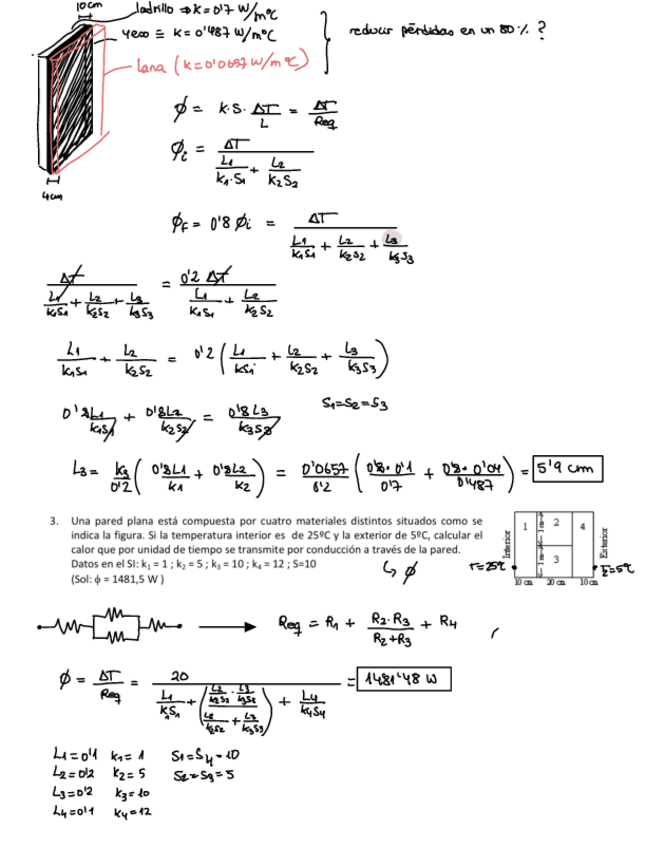 10cm ladrillo ⇒ k = 0'7 W/m°C
yeso ≡ k = 0'487 W/m°C
lana (k = 0'0657 W/m°C)
reducir pérdidas en un 80% ?
4cm
ϕ = k·S·ΔT/L = ΔT/Req
ϕi = ΔT/(L1/(k1·S1) + L2/(k2S2))
ϕF = 0'8 ϕi = ΔT/(L1/(k1S1) + L2/(k2S2) + L3/(k3S3))
ΔT/(L1/(k1S1) + L2/(k2S2) + L3/(k3S3)) = 0'2 ΔT/(L1/(k1S1) + L2/(k2S2))
L1/(k1S1) + L2/(k2S2) = 0'2 (L1/(kS1) + L2/(k2S2) + L3/(k3S3))
0'8L1/(k1S1) + 0'8L2/(k2S2) = 0'8L3/(k3S3) S1=S2=S3
L3 = k3/0'2 (0'8L1/k1 + 0'8L2/k2) = 0'0657/0'2 (0'8·0'1/0'7 + 0'8·0'04/0'487) = 5'9 cm
3. Una pared plana está compuesta por cuatro materiales distintos situados como se
indica la figura. Si la temperatura interior es de 25ºC y la exterior de 5ºC, calcular el
calor que por unidad de tiempo se transmite por conducción a través de la pared.
Datos en el SI: k1 = 1 ; k2 = 5 ; k3 = 10 ; k4 = 12 ; S=10
(Sol: ϕ = 1481,5 W )
↳ ϕ
Interior
T=25℃
1
2
3
4
1 m
1 m
Exterior
T=5℃
10 cm 20 cm 10 cm
Req = R1 + R2·R3/(R2+R3) + R4
ϕ = ΔT/Req = 20/(L1/(k1S1) + ((L2/(k2S2) · L3/(k3S3))/(L2/(k2S2) + L3/(k3S3))) + L4/(k4S4)) = 1481'48 W
L1=0'1 k1=1 S1=S4=10
L2=0'2 k2=5 S2=S3=5
L3=0'2 k3=10
L4=0'1 k4=12